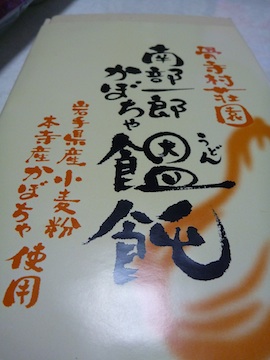 骨寺村荘園
南部一郎
かぼちゃ
饂飩
うどん
岩手県産小麦粉
本寺産かぼちゃ
使用